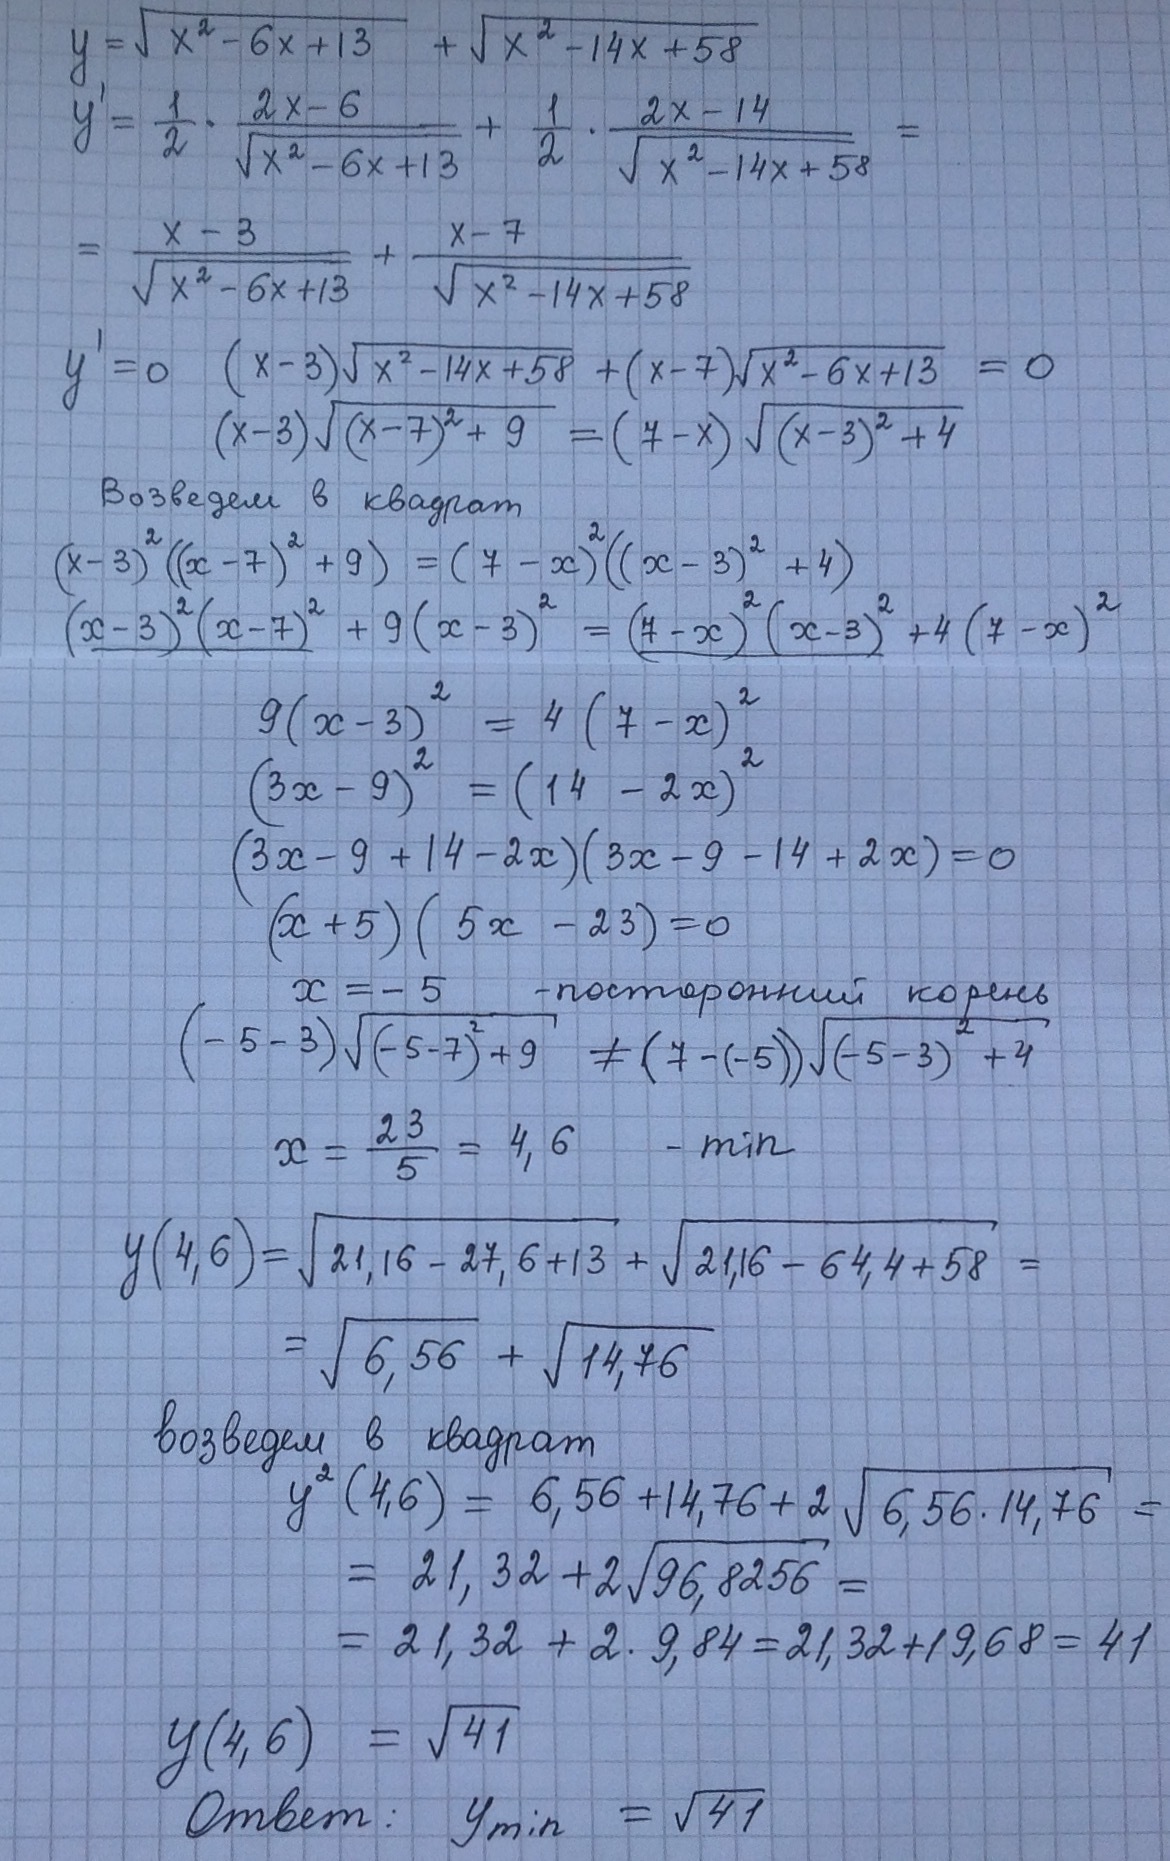 y = √(x² - 6x + 13) + √(x² - 14x + 58)
y' = 1/2 · (2x - 6)/√(x² - 6x + 13) + 1/2 · (2x - 14)/√(x² - 14x + 58) =
= (x - 3)/√(x² - 6x + 13) + (x - 7)/√(x² - 14x + 58)
y' = 0 (x - 3)√(x² - 14x + 58) + (x - 7)√(x² - 6x + 13) = 0
(x - 3)√((x - 7)² + 9) = (7 - x)√((x - 3)² + 4)
Возведем в квадрат
(x - 3)²((x - 7)² + 9) = (7 - x)²((x - 3)² + 4)
(x - 3)²(x - 7)² + 9(x - 3)² = (7 - x)²(x - 3)² + 4(7 - x)²
9(x - 3)² = 4(7 - x)²
(3x - 9)² = (14 - 2x)²
(3x - 9 + 14 - 2x)(3x - 9 - 14 + 2x) = 0
(x + 5)(5x - 23) = 0
x = -5 - посторонний корень
(-5 - 3)√((-5 - 7)² + 9) ≠ (7 - (-5))√((-5 - 3)² + 4)
x = 23/5 = 4,6 - min
y(4,6) = √(21,16 - 27,6 + 13) + √(21,16 - 64,4 + 58) =
= √6,56 + √14,76
возведем в квадрат
y²(4,6) = 6,56 + 14,76 + 2√(6,56 · 14,76) =
= 21,32 + 2√96,8256 =
= 21,32 + 2 · 9,84 = 21,32 + 19,68 = 41
y(4,6) = √41
Ответ: y min = √41